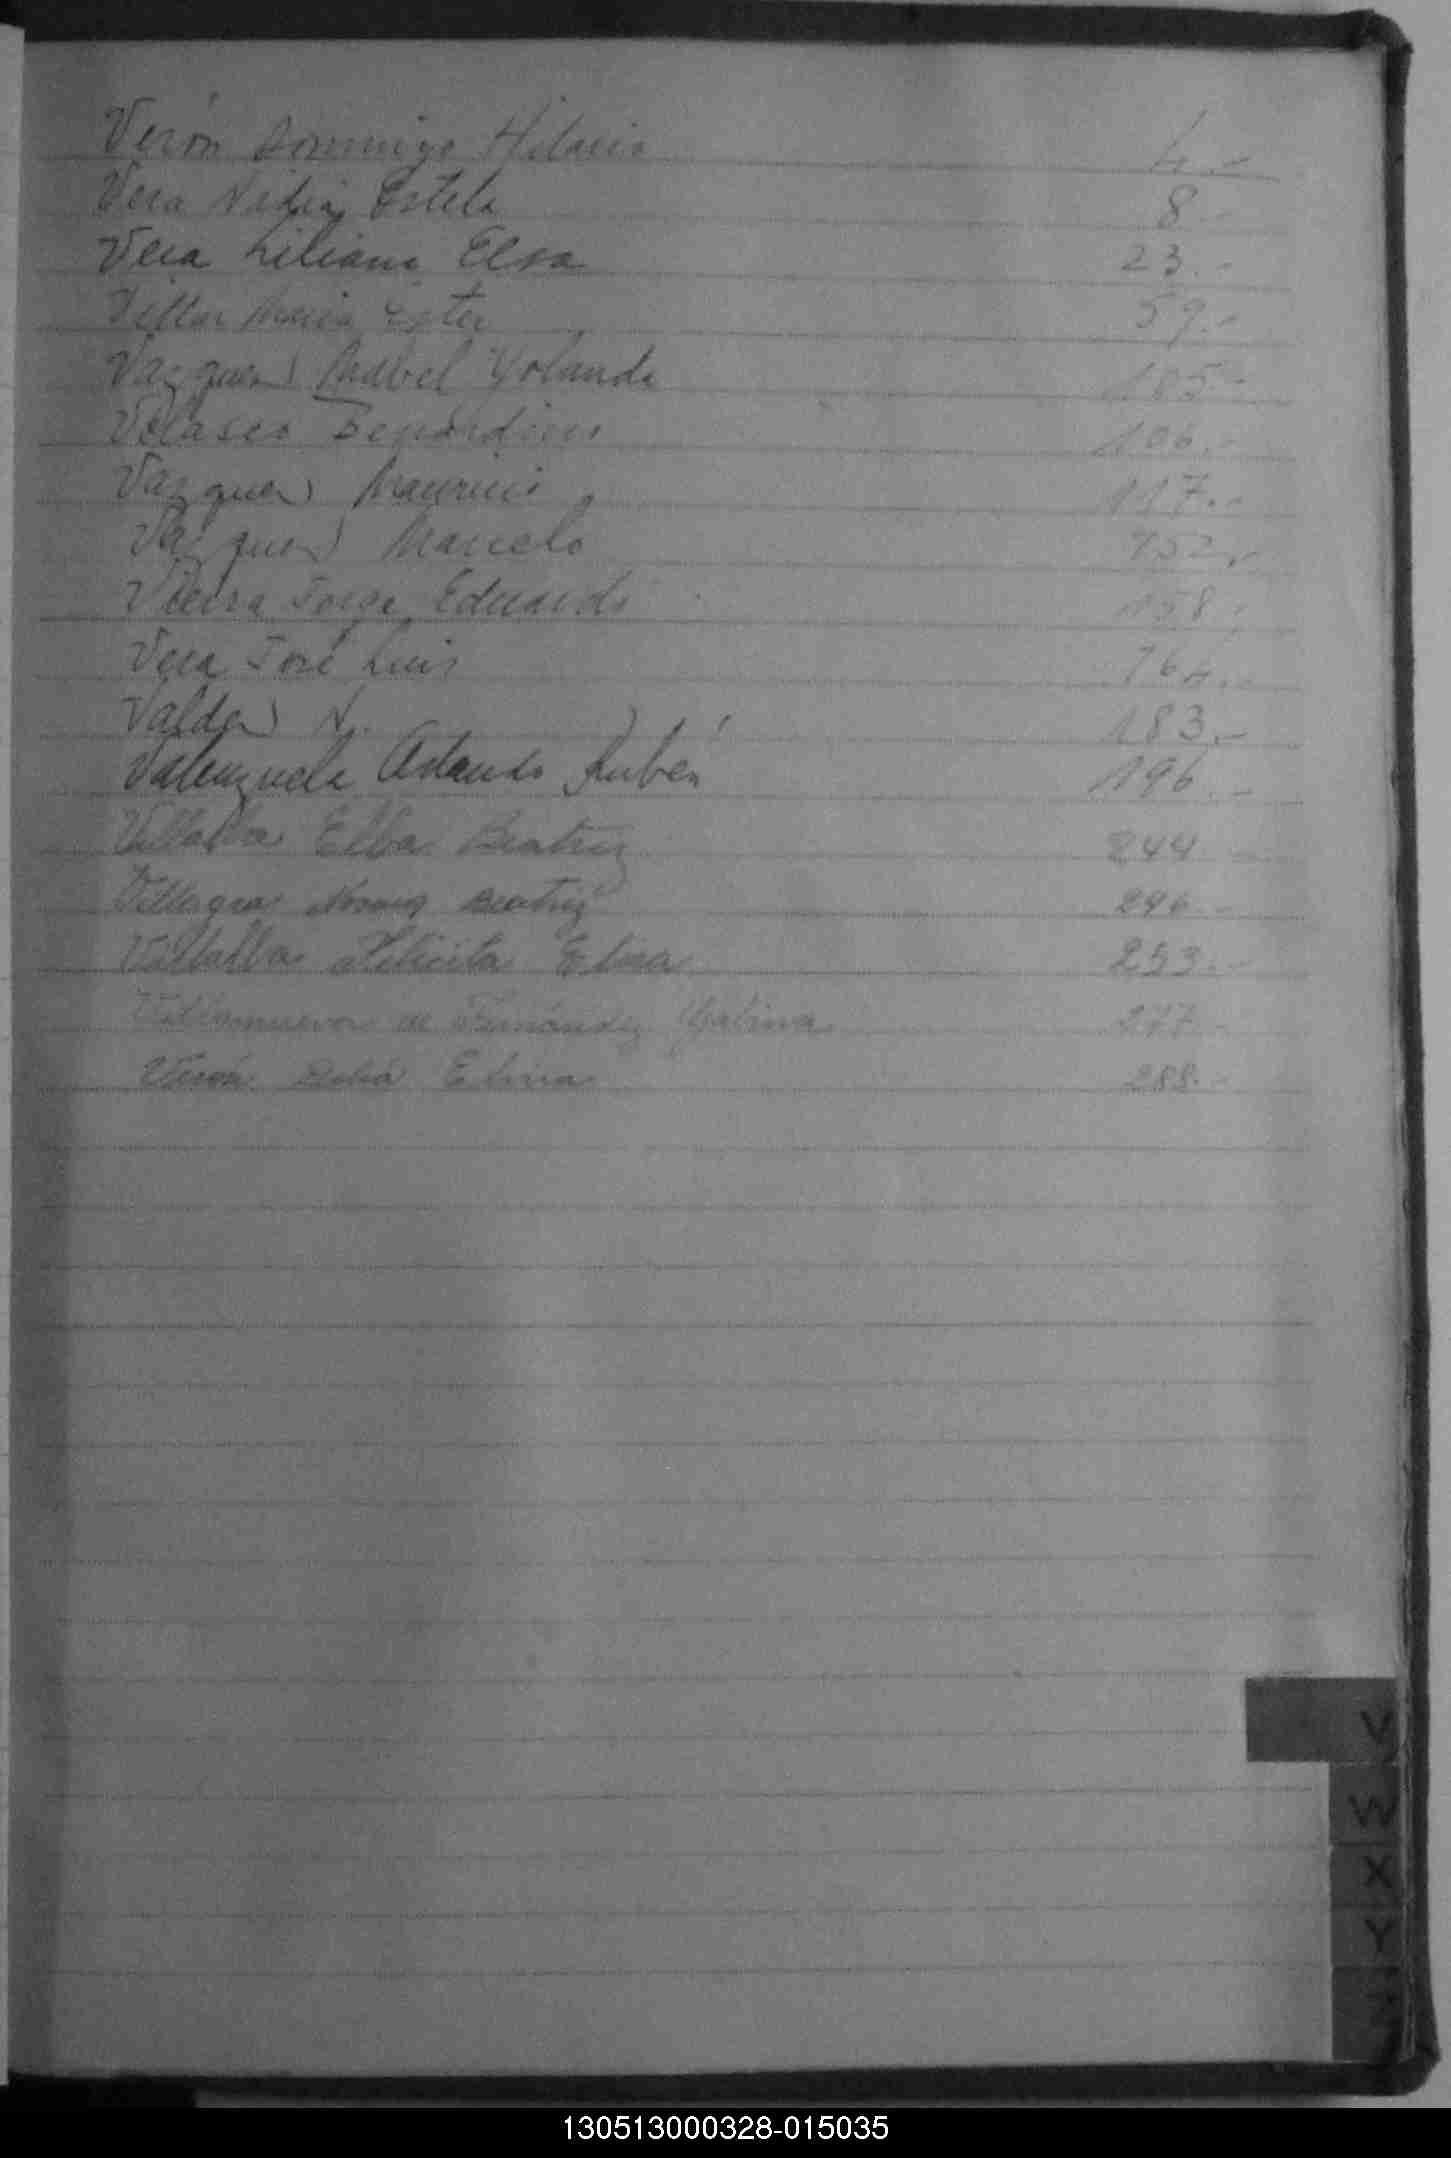 Verón Domingo Hilario 4.-
Vera Nidia Estela 8.-
Vera Liliana Elsa 23.-
Villar Maria Ester 59.-
Vazquez Mabel Yolanda 105.-
Velasco Bernardino 106.-
Vazquez Mauricio 117.-
Vazquez Marcelo 152.-
Vieira Jorge Eduardo 158.-
Vera José Luis 164.-
Valdez N. 183.-
Valenzuela Orlando Rubén 196.-
Villalba Elba Beatriz 244.-
Villagra Beatriz 246.-
Villalba Felicita Elisa 253.-
Villanueva de Fernández 277.-
Verón Delia Elvira 288.-
V
W
X
Y
130513000328-015035